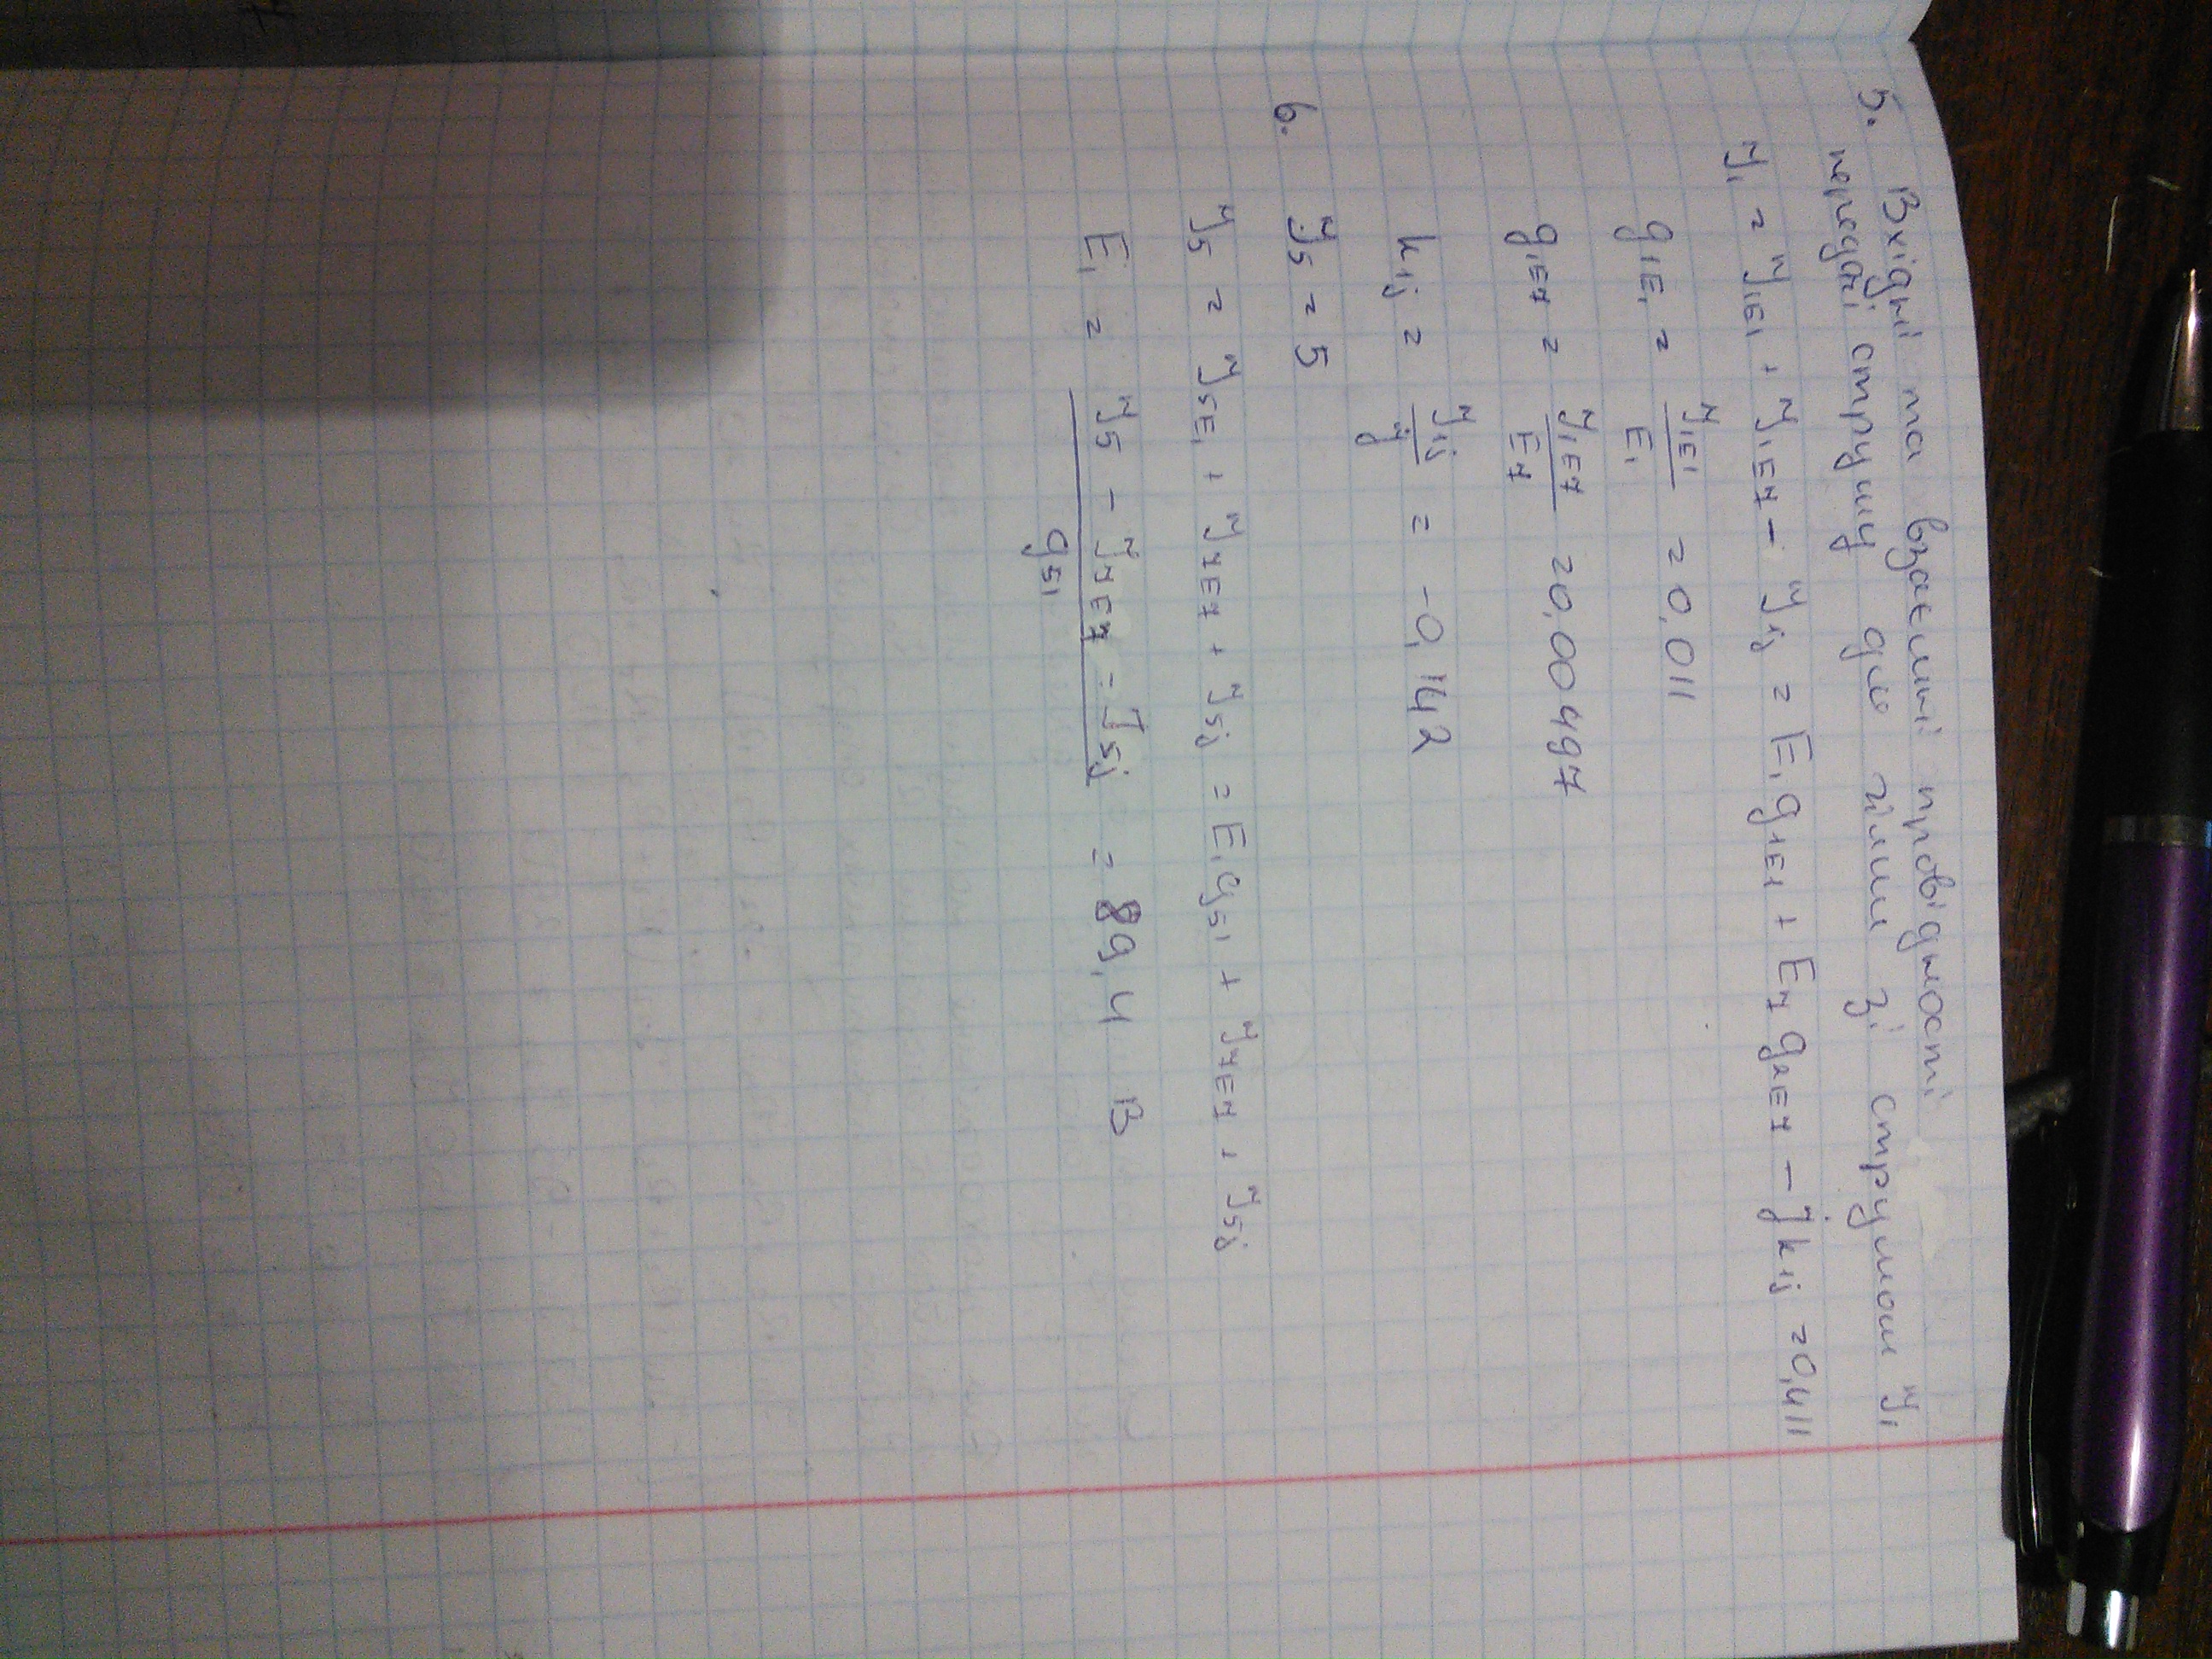 5. Вхідні та взаємні провідності
передачі струму для гілки зі струмом J₁
J₁ = J₁E₁ + J₁E7 - J₁j = E₁g₁E₁ + E7 g₁E7 - jk₁j = 0,411
g₁E₁ = J₁E₁ / E₁ = 0,011
g₁E7 = J₁E7 / E7 = 0,00497
k₁j = J₁j / J = -0,142
6. J5 = 5
J5 = J5E₁ + J7E7 + J5j = E₁g51 + J7E7 + J5j
E₁ = (J5 - J7E7 - J5j) / g51 = 89,4 В